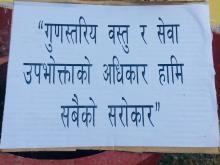 “गुणस्तरिय वस्तु र सेवा
उपभोक्ताको अधिकार हामि
सबैको सरोकार”